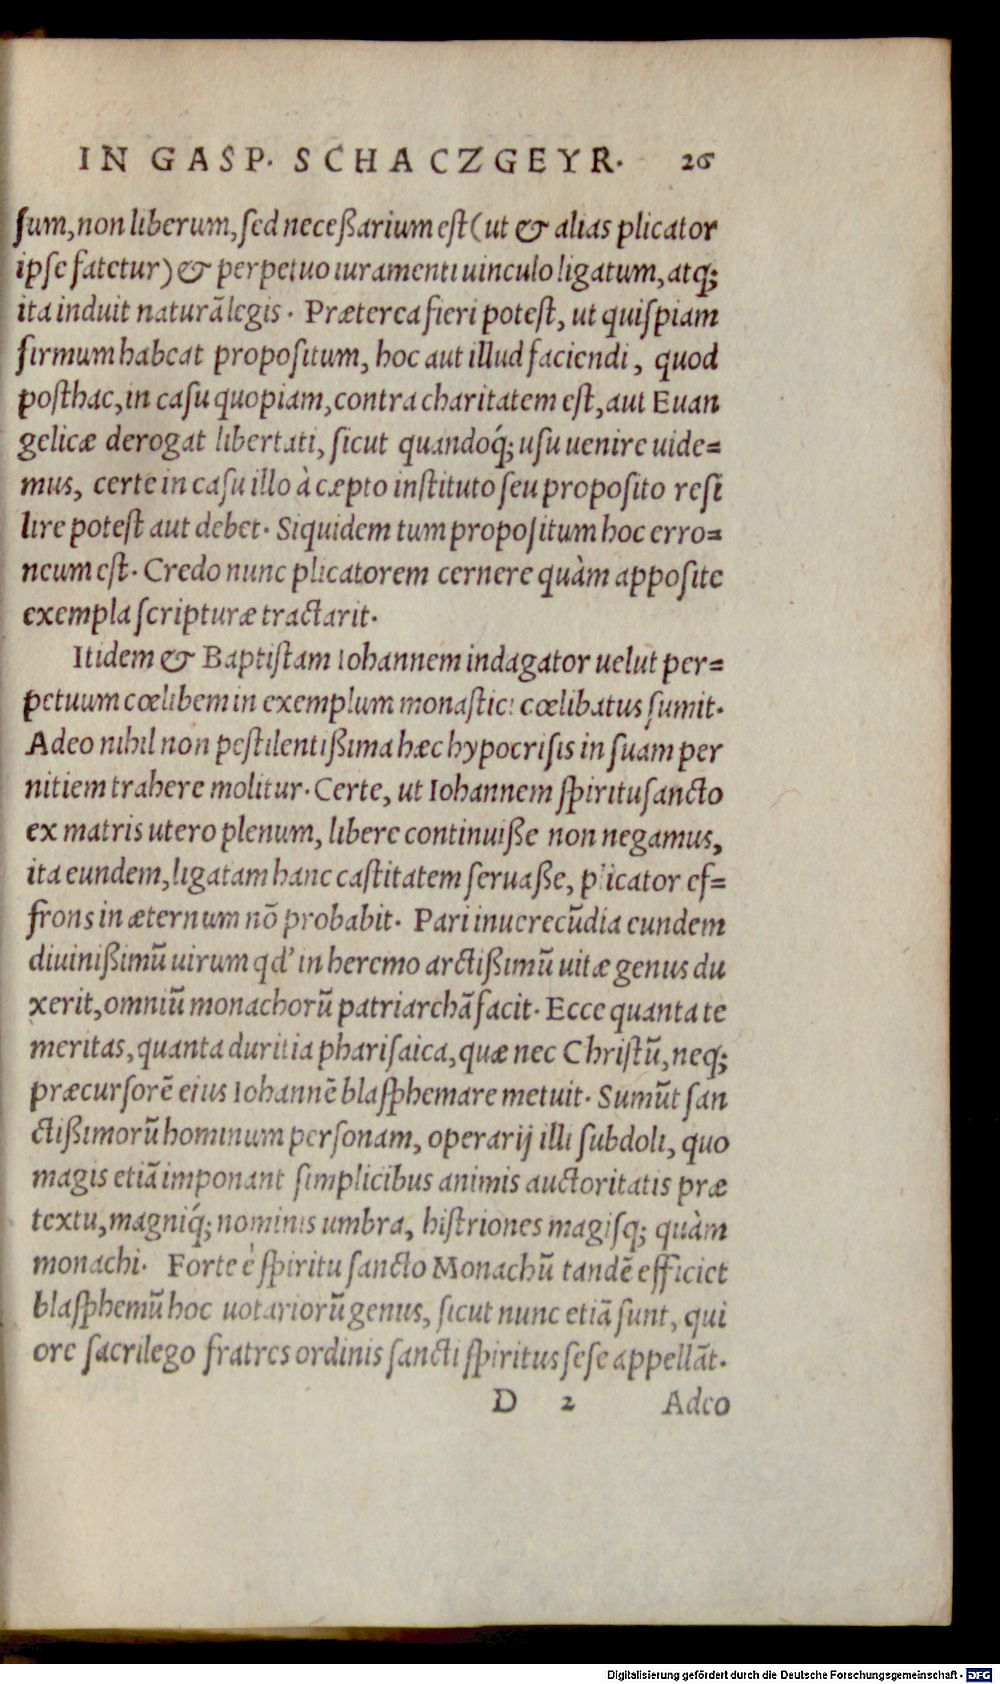 IN GASP. SCHACZGEYR. 26
sum, non liberum, sed neceßarium est (ut & alias plicator
ipse fatetur) & perpetuo iuramenti uinculo ligatum, atq;
ita induit naturã legis. Præterea fieri potest, ut quispiam
firmum habeat propositum, hoc aut illud faciendi, quod
posthac, in casu quopiam, contra charitatem est, aut Euan
gelicæ derogat libertati, sicut quandoq́; usu uenire uide=
mus, certe in casu illo à cæpto instituto seu proposito resi
lire potest aut debet. Siquidem tum propositum hoc erro=
neum est. Credo nunc plicatorem cernere quàm apposite
exempla scripturæ tractarit.
Itidem & Baptistam Iohannem indagator uelut per=
petuum cœlibem in exemplum monastici cœlibatus sumit.
Adeo nihil non pestilentißima hæc hypocrisis in suam per
nitiem trahere molitur. Certe, ut Iohannem spiritu sancto
ex matris utero plenum, libere continuiße non negamus,
ita eundem, ligatam hanc castitatem seruaße, plicator ef=
frons in æternum nõ probabit. Pari inuerecũdia eundem
diuinißimũ uirum qd' in heremo arctißimũ uitæ genus du
xerit, omniũ monachorũ patriarchã facit. Ecce quanta te
meritas, quanta duritia pharisaica, quæ nec Christũ, neq;
præcursorẽ eius Iohannẽ blasphemare metuit. Sumũt san
ctißimorũ hominum personam, operarij illi subdoli, quo
magis etiã imponant simplicibus animis auctoritatis præ
textu, magniq́; nominis umbra, histriones magisq; quàm
monachi. Forte è spiritu sancto Monachũ tandẽ efficiet
blasphemũ hoc uotariorũ genus, sicut nunc etiã sunt, qui
ore sacrilego fratres ordinis sancti spiritus sese appellãt.
D 2 Adeo
Digitalisierung gefördert durch die Deutsche Forschungsgemeinschaft - DFG